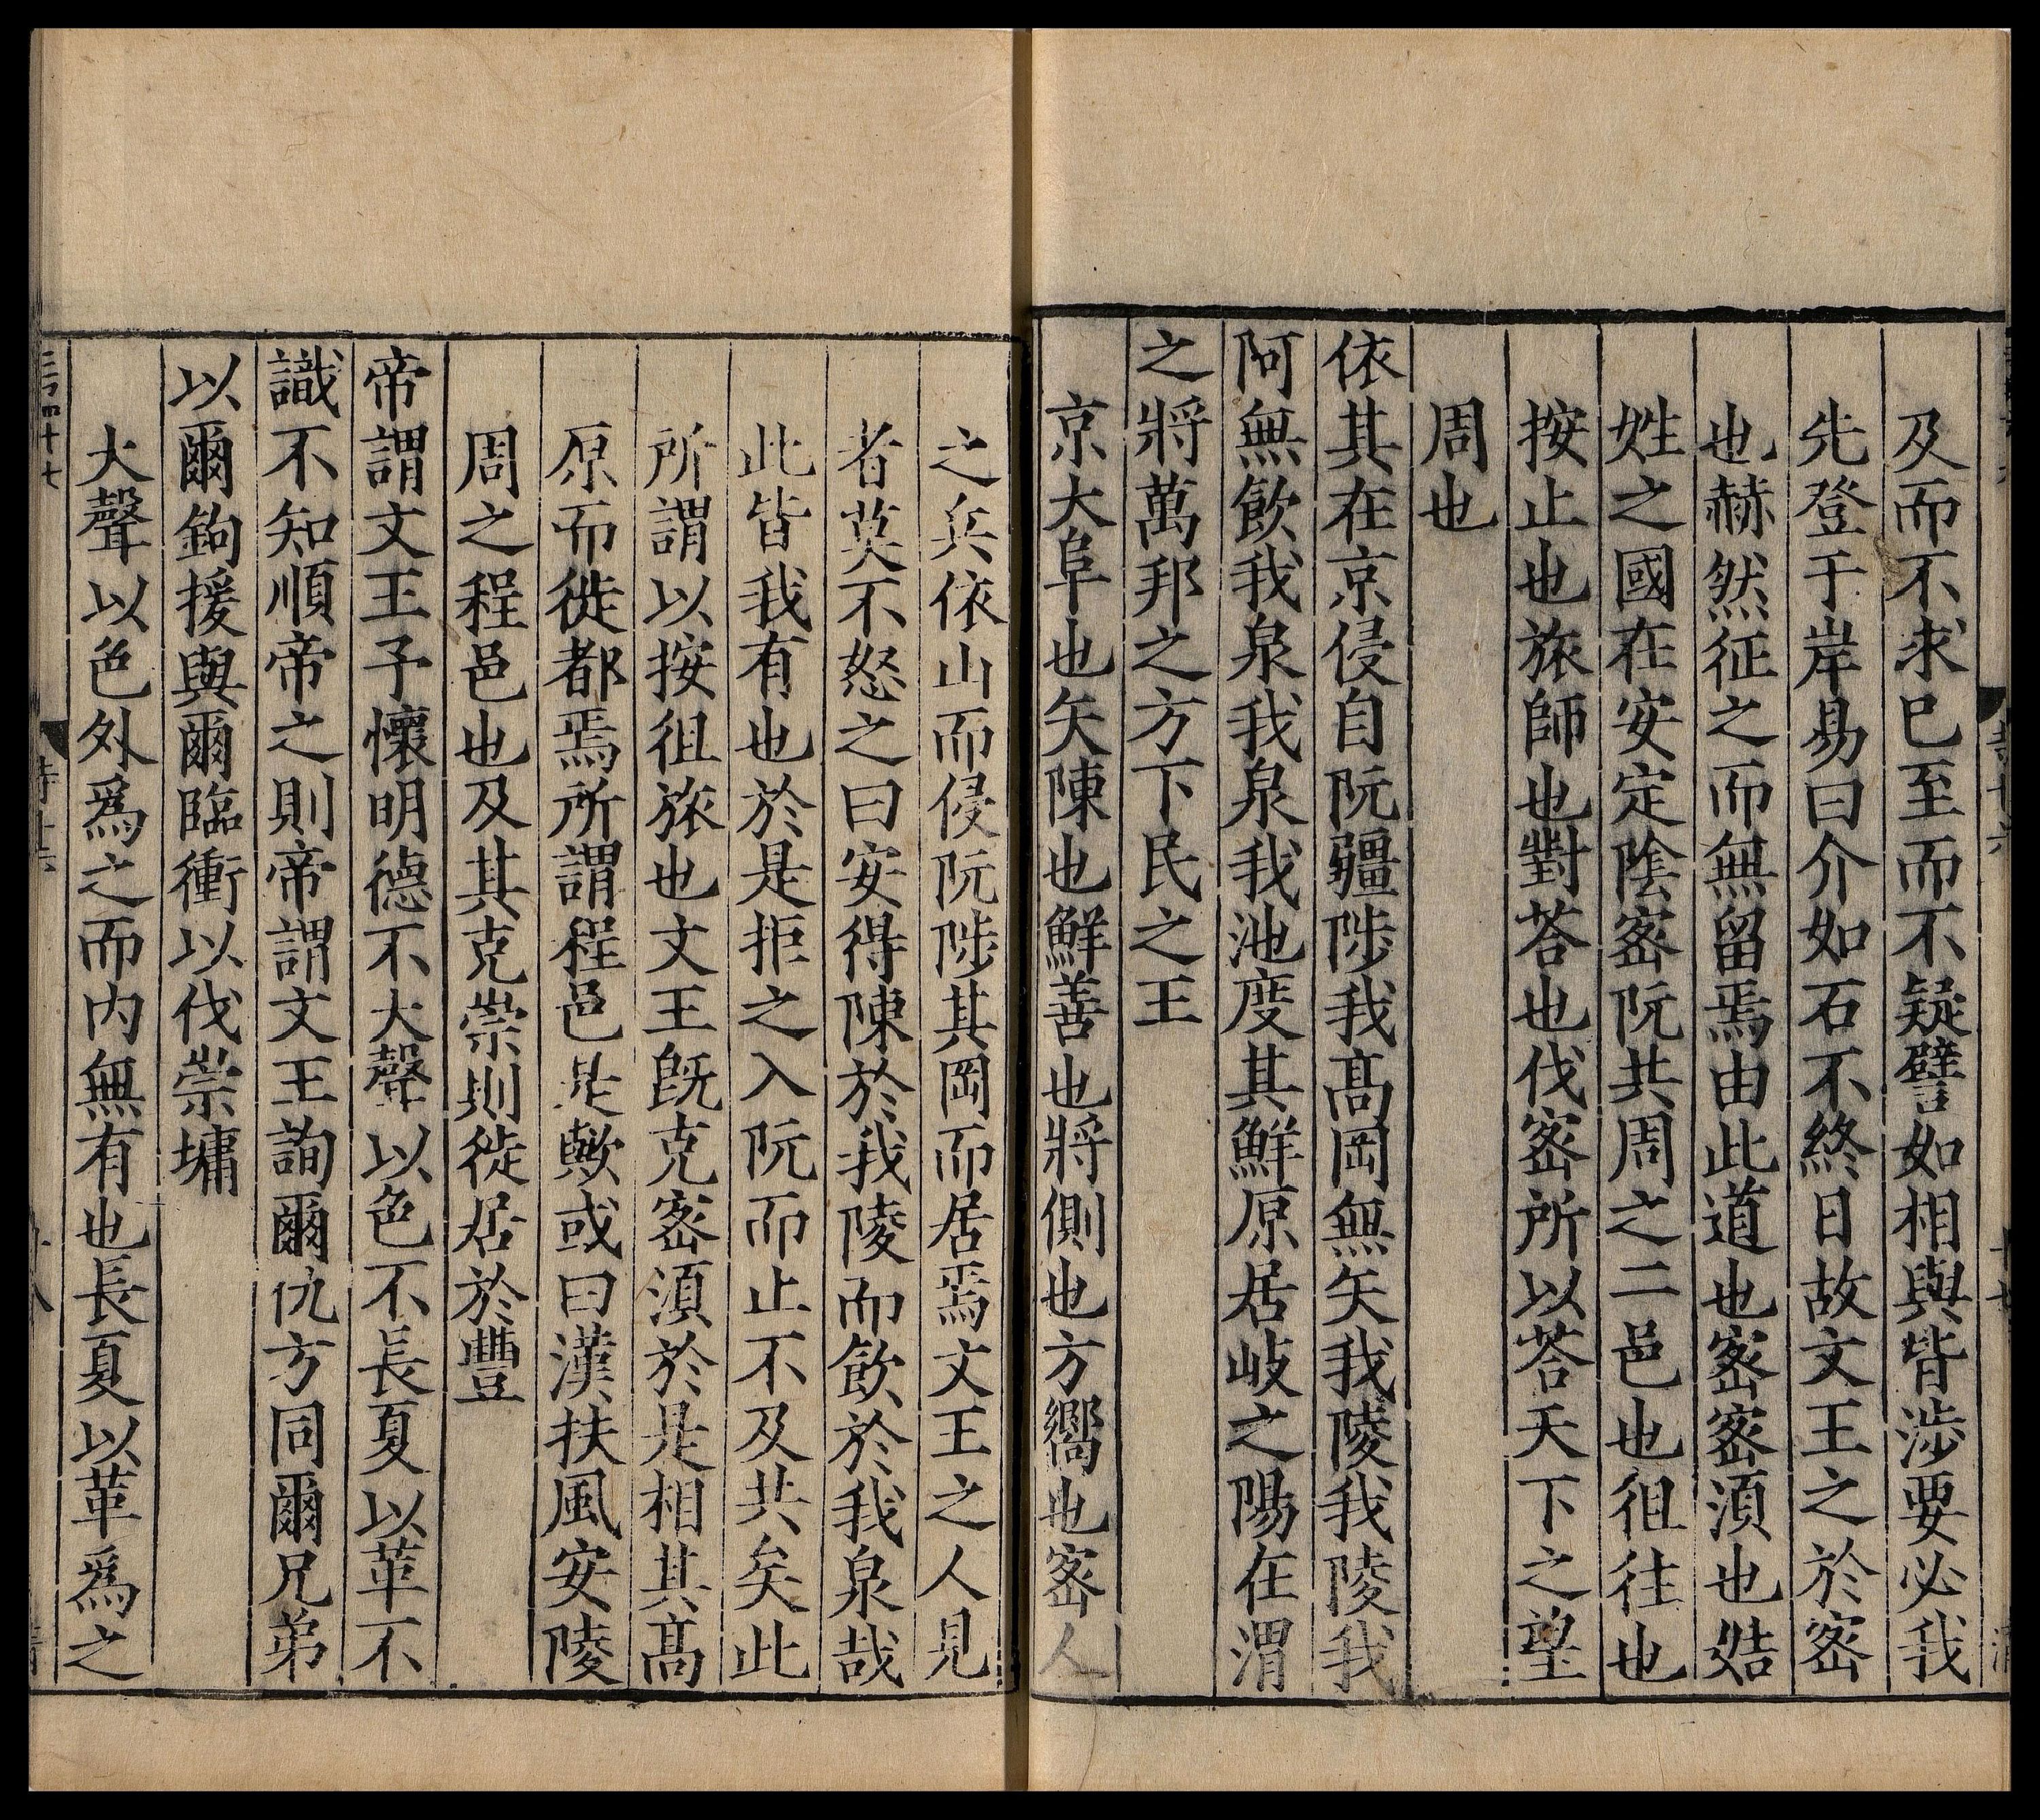 及而不求已至而不疑譬如相與皆涉要必我
先登于岸易曰介如石不終日故文王之於宻
也赫然征之而無留焉由此道也宻宻湏也姞
姓之國在安定陰宻阮共周之二邑也徂往也
按止也旅師也對荅也伐宻所以荅天下之望
周也
依其在京侵自阮疆陟我髙岡無矢我陵我陵我
阿無飲我泉我泉我池度其鮮原居岐之陽在渭
之將萬邦之方下民之王
京大阜也矢陳也鮮善也將側也方嚮也宻人
之兵依山而侵阮陟其岡而居焉文王之人見
者莫不怒之曰安得陳於我陵而飲於我泉哉
此皆我有也於是拒之入阮而止不及共矣此
所謂以按徂旅也文王旣克宻湏於是相其髙
原而徙都焉所謂程邑是歟或曰漢扶風安陵
周之程邑也及其克崇則徙居於豐
帝謂文王予懷明德不大聲以色不長夏以革不
識不知順帝之則帝謂文王詢爾仇方同爾兄弟
以爾鉤援與爾臨衝以伐崇墉
大聲以色外爲之而内無有也長夏以革爲之